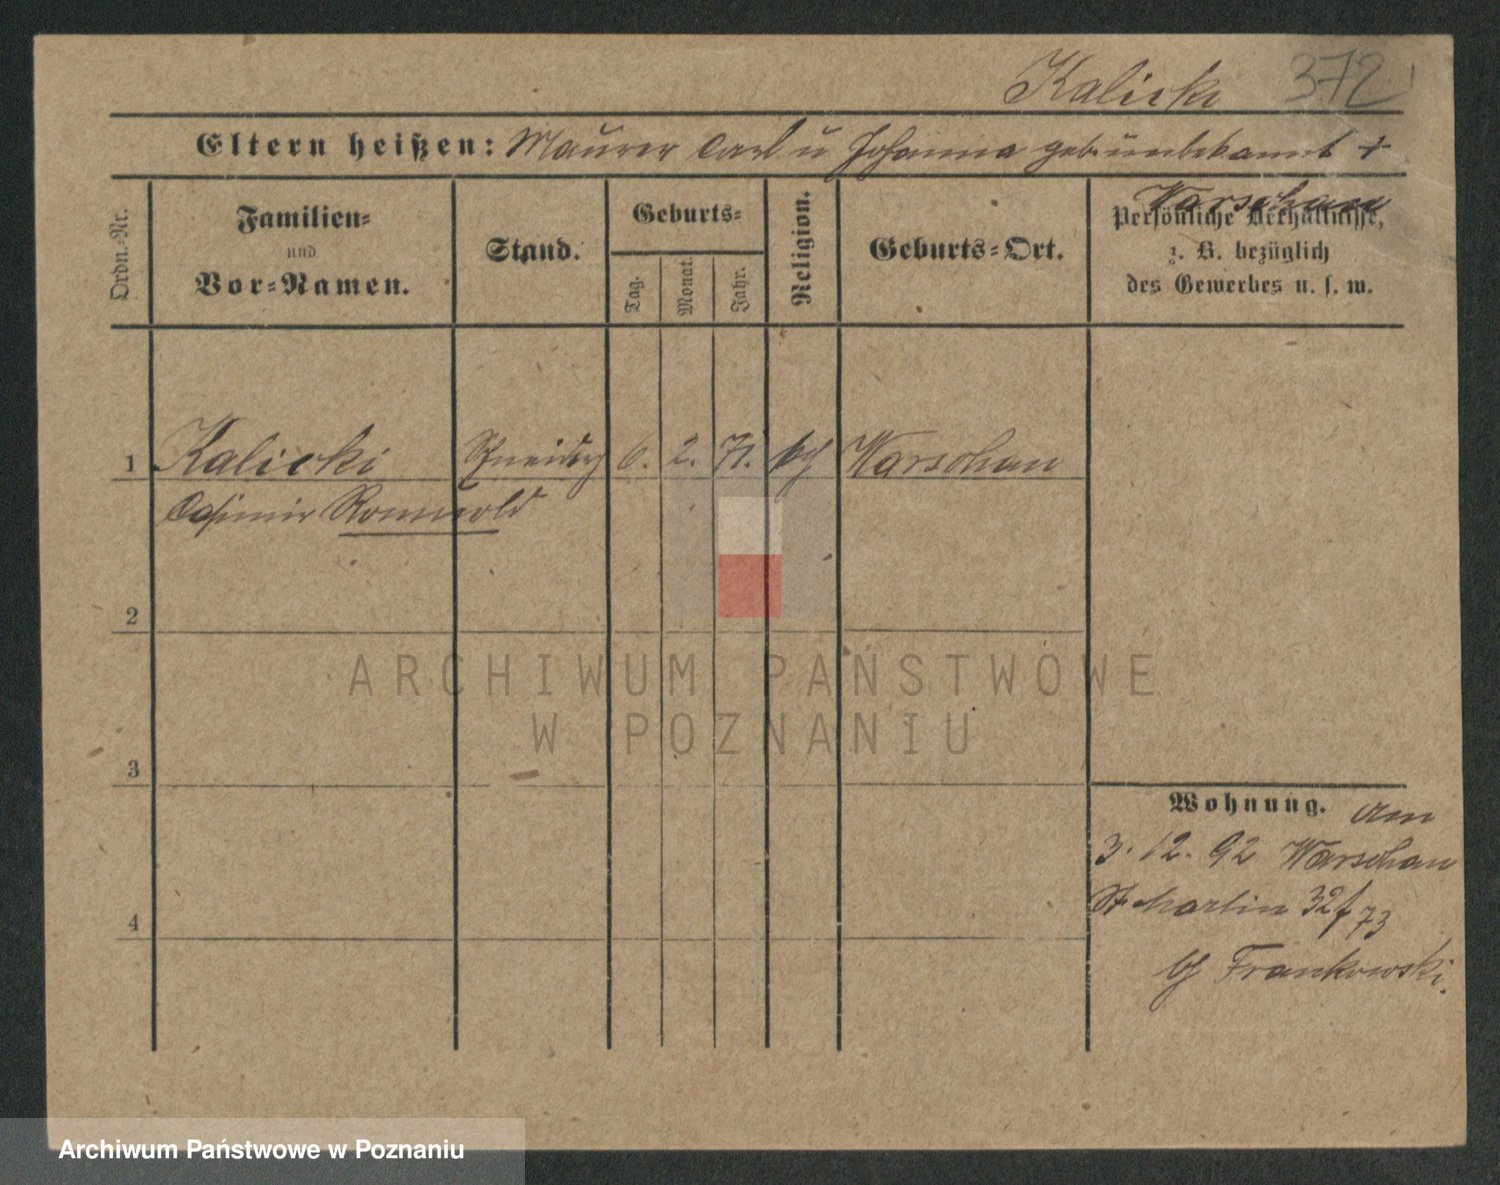 Kalicki 372
Eltern heißen: Maurer Carl u Johanna geb. unbekannt +
Warschau
Ordn.-Nr.
Familien-
und
Vor-Namen.
Stand.
Geburts-
Tag.
Monat.
Jahr.
Religion.
Geburts-Ort.
Persönliche Verhältnisse,
z. B. bezüglich
des Gewerbes u. s. w.
1 Kalicki Schneiderg 6. 2. 71. Warschau
Casimir Romuald
2
ARCHIWUM PAŃSTWOWE
W POZNANIU
3
Wohnung. am
3. 12. 92 Warschau
St Martin 32/73
Frankowski.
4
Archiwum Państwowe w Poznaniu